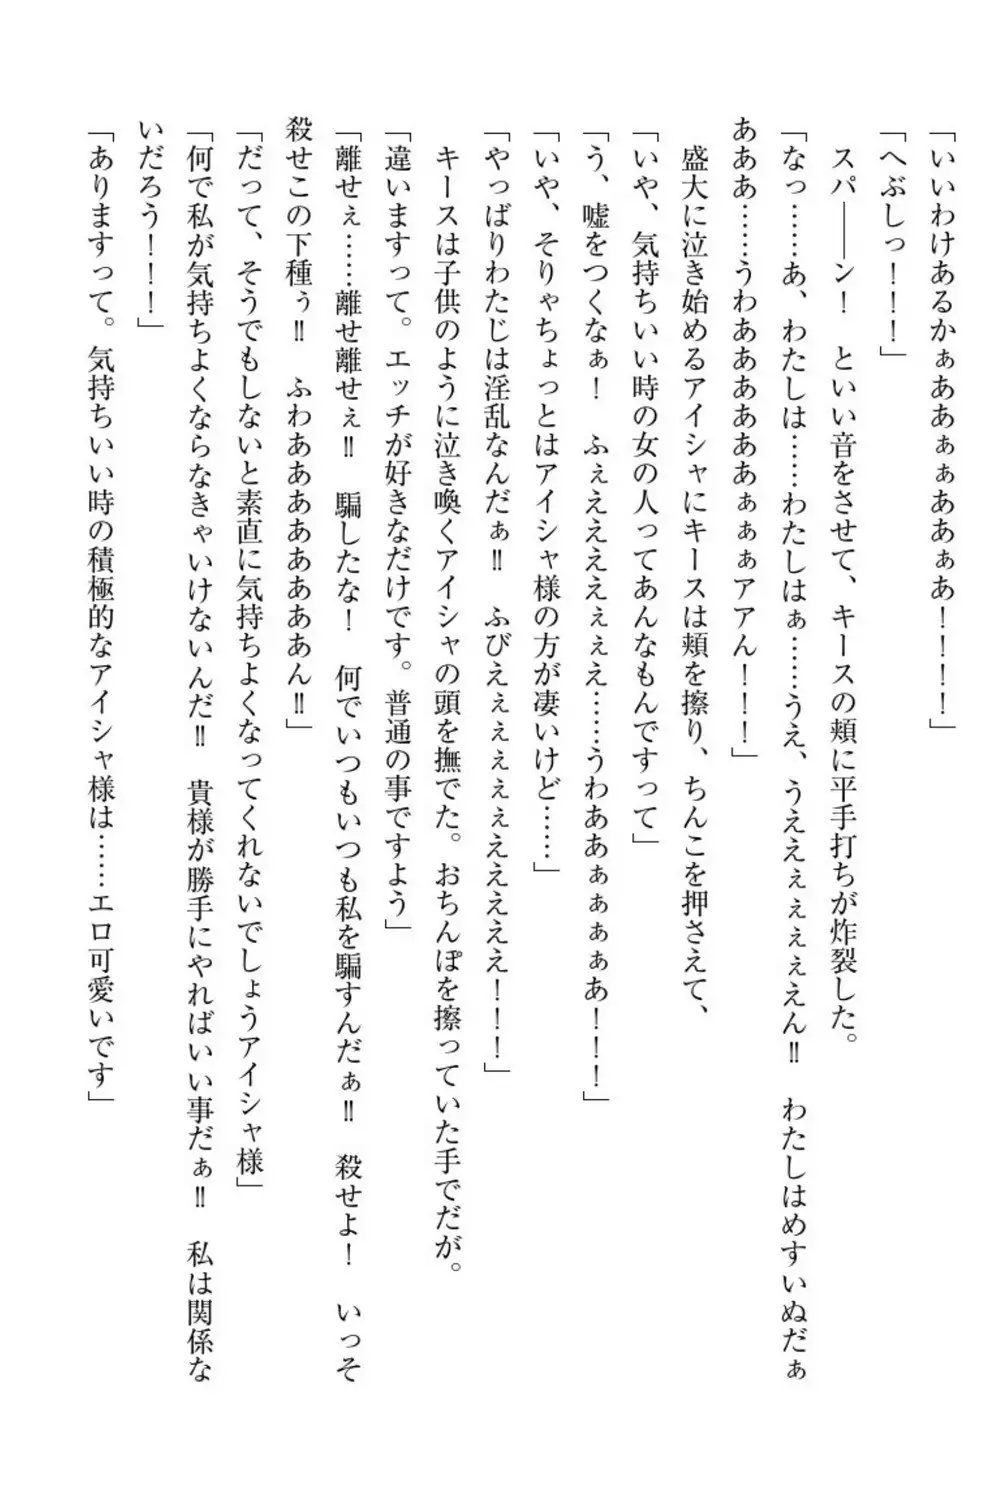 「いいわけあるかぁああぁぁああぁあ！！！！」
「へぶしっ！！！」
　スパ――ン！　といい音をさせて、キースの頬に平手打ちが炸裂した。
「なっ……あ、わたしは……わたしはぁ……うえ、うええぇぇぇえん‼　わたしはめすいぬだぁ
あああ……うわああああああぁぁぁアアん！！！」
　盛大に泣き始めるアイシャにキースは頬を擦り、ちんこを押さえて、
「いや、気持ちいい時の女の人ってあんなもんですって」
「う、嘘をつくなぁ！　ふぇええええぇぇえ……うわああぁぁぁぁあ！！！」
「いや、そりゃちょっとはアイシャ様の方が凄いけど……」
「やっぱりわたじは淫乱なんだぁ‼　ふびえぇぇぇぇえええええ！！！」
　キースは子供のように泣き喚くアイシャの頭を撫でた。おちんぽを擦っていた手でだが。
「違いますって。エッチが好きなだけです。普通の事ですよう」
「離せぇ……離せ離せぇ‼　騙したな！　何でいつもいつも私を騙すんだぁ‼　殺せよ！　いっそ
殺せこの下種ぅ‼　ふわああああああああん‼」
「だって、そうでもしないと素直に気持ちよくなってくれないでしょうアイシャ様」
「何で私が気持ちよくならなきゃいけないんだ‼　貴様が勝手にやればいい事だぁ‼　私は関係な
いだろう！！！」
「ありますって。気持ちいい時の積極的なアイシャ様は……エロ可愛いです」